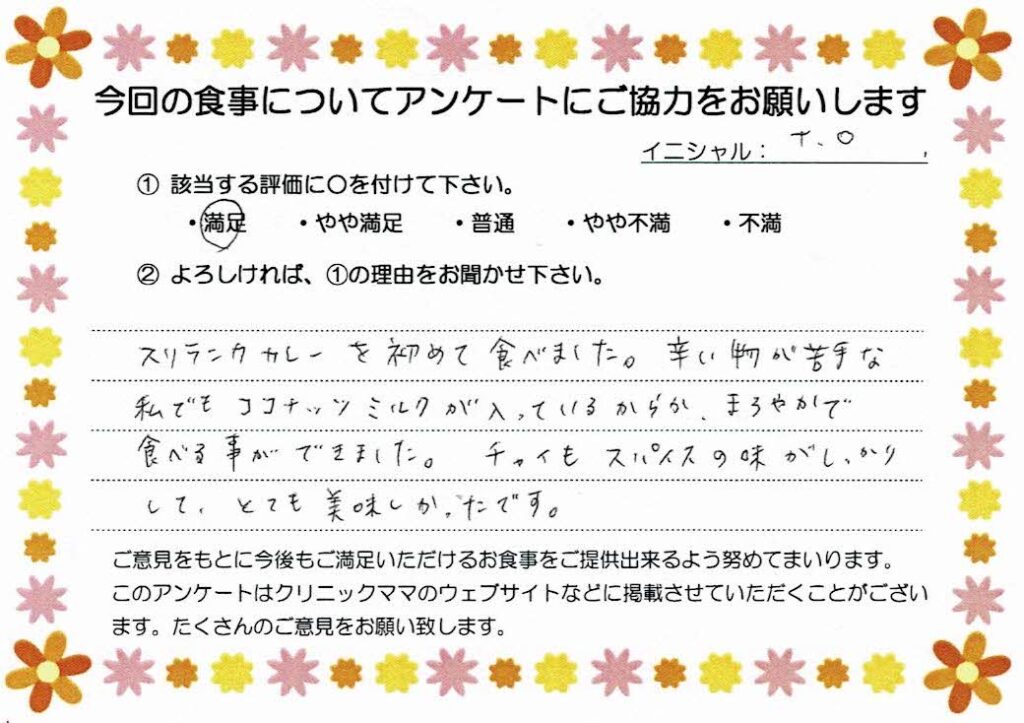 今回の食事についてアンケートにご協力をお願いします
イニシャル： T.O
① 該当する評価に〇を付けて下さい。
・満足 ・やや満足 ・普通 ・やや不満 ・不満
② よろしければ、①の理由をお聞かせ下さい。
スリランカカレーを初めて食べました。辛い物が苦手な
私でもココナッツミルクが入っているからか、まろやかで
食べる事ができました。 チャイもスパイスの味がしっかり
して、とても美味しかったです。
ご意見をもとに今後もご満足いただけるお食事をご提供出来るよう努めてまいります。
このアンケートはクリニックママのウェブサイトなどに掲載させていただくことがござい
ます。たくさんのご意見をお願い致します。